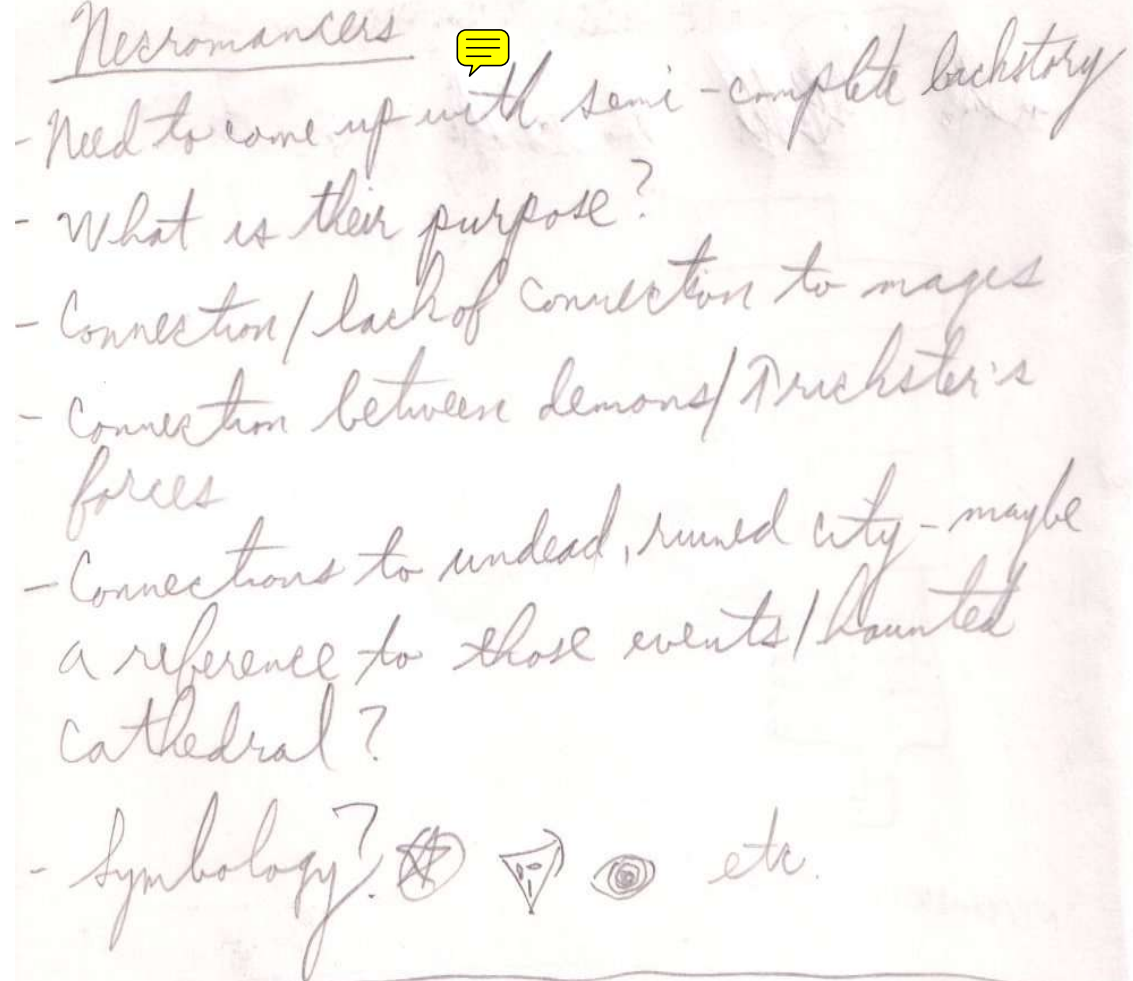 Necromancers
- Need to come up with semi-complete backstory
- What is their purpose?
- Connection/lack of connection to mages
- Connection between demons/Trickster's
forces
- Connections to undead, ruined city - maybe
a reference to those events/haunted
cathedral?
- Symbology? etc.